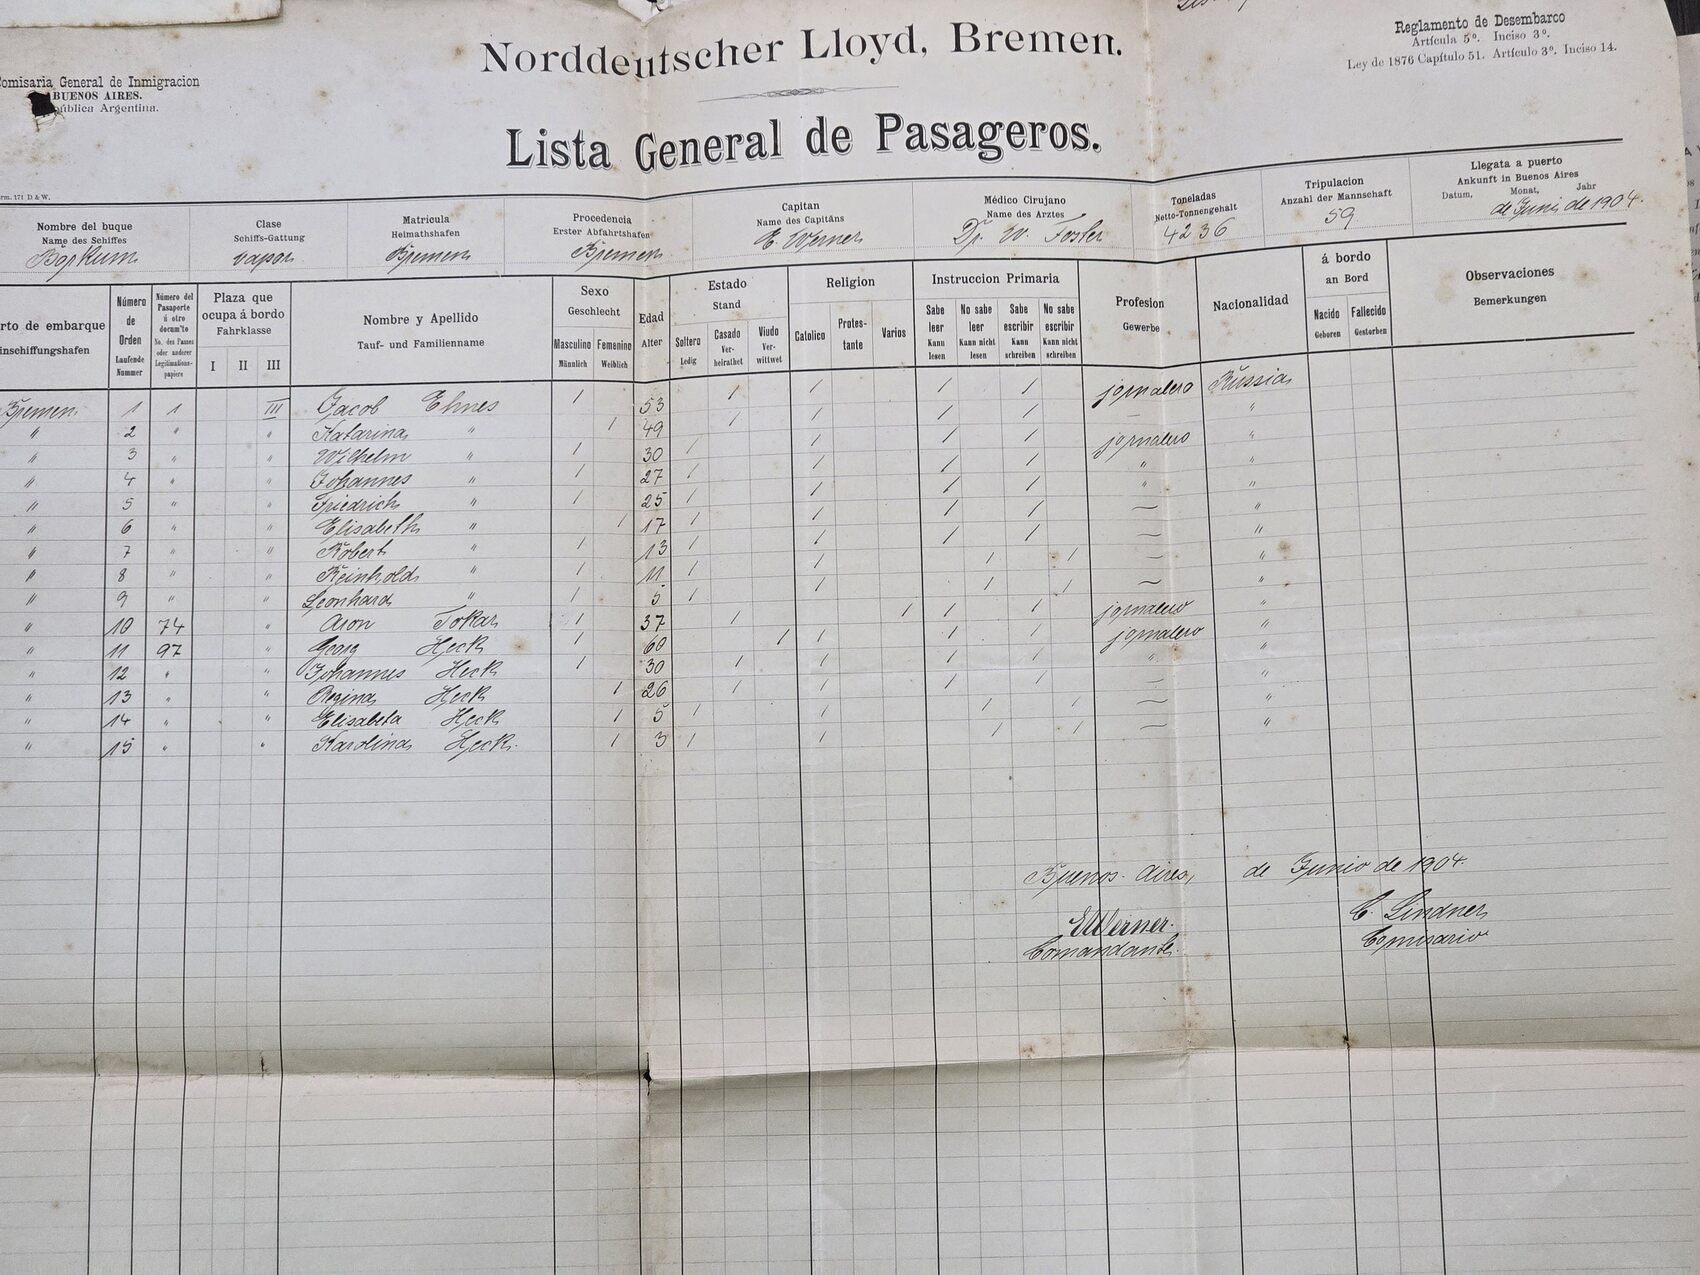 Norddeutscher Lloyd, Bremen.
Reglamento de Desembarco
Artícula 5º. Inciso 3º.
Ley de 1876 Capítulo 51. Artículo 3º. Inciso 14.
Comisaria General de Inmigracion
BUENOS AIRES.
República Argentina.
Lista General de Pasageros.
rm. 171 D & W.
Nombre del buque
Name des Schiffes
Borkum
Clase
Schiffs-Gattung
vapor
Matricula
Heimathshafen
Bremen
Procedencia
Erster Abfahrtshafen
Bremen
Capitan
Name des Capitäns
E. Werner
Médico Cirujano
Name des Arztes
Dr. W. Foster
Toneladas
Netto-Tonnengehalt
4236
Tripulacion
Anzahl der Mannschaft
59
Llegata a puerto
Ankunft in Buenos Aires
Datum, Monat, Jahr
de Junio de 1904.
rto de embarque
inschiffungshafen
Número de Orden
Laufende Nummer
Número del Pasaporte ú otro docum'to
No. des Passes oder anderer Legitimations-papiere
Plaza que ocupa á bordo
Fahrklasse
I II III
Nombre y Apellido
Tauf- und Familienname
Sexo
Geschlecht
Masculino Männlich
Femenino Weiblich
Edad
Alter
Estado
Stand
Soltero Ledig
Casado Ver-heirathet
Viudo Ver-wittwet
Religion
Catolico
Protes-tante
Varios
Instruccion Primaria
Sabe leer Kann lesen
No sabe leer Kann nicht lesen
Sabe escribir Kann schreiben
No sabe escribir Kann nicht schreiben
Profesion
Gewerbe
Nacionalidad
á bordo
an Bord
Nacido Geboren
Fallecido Gestorben
Observaciones
Bemerkungen
Bremen 1 1 III Jacob Ehnes / 53 / / / / jornalero Russia
" 2 " " Katarina " / 49 / / / / — "
" 3 " " Wilhelm " / 30 / / / / jornalero "
" 4 " " Johannes " / 27 / / / / " "
" 5 " " Friedrich " / 25 / / / / " "
" 6 " " Elisabeth " / 17 / / / / — "
" 7 " " Robert " / 13 / / / / — "
" 8 " " Reinhold " / 11 / / / / — "
" 9 " " Leonhard " / 5 / / / / — "
" 10 74 " Aron Tokar / 37 / / / / jornalero "
" 11 97 " Georg Heck / 60 / / / / jornalero "
" 12 " " Johannes Heck / 30 / / / / " "
" 13 " " Regina Heck / 26 / / / / — "
" 14 " " Elisabeta Heck / 5 / / / / — "
" 15 " " Karolina Heck. / 3 / / / / — "
Buenos-Aires, de Junio de 1904.
EWerner. C. Lindner
Comandante. Comisario